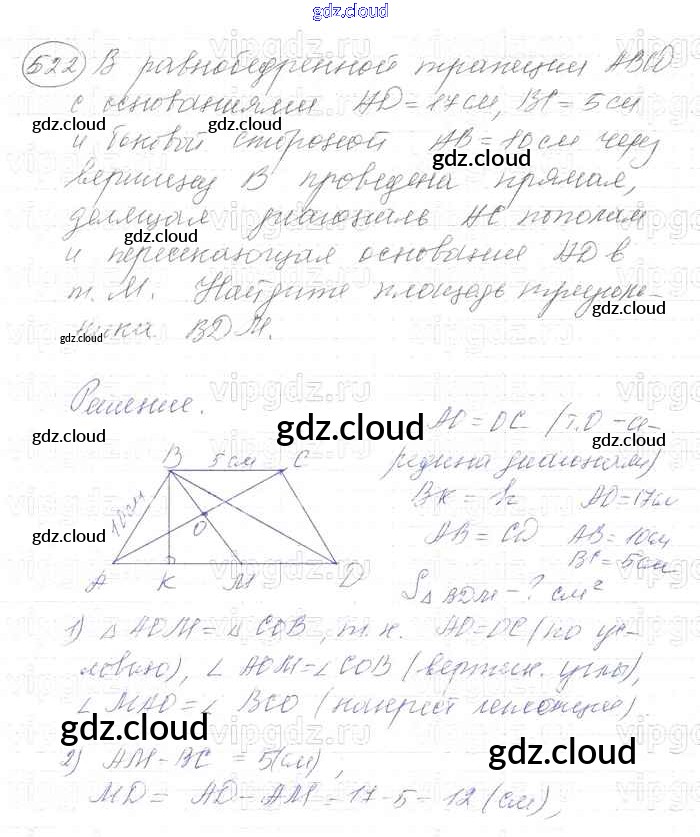 gdz.cloud
522 В равнобедренной трапеции ABCD
с основаниями AD = 17 см, BC = 5 см
и боковой стороной AB = 10 см через
вершину B проведена прямая,
делящая диагональ AC пополам
и пересекающая основание AD в
т. M. Найдите площадь треуголь-
ника BDM.
Решение.
AO = OC (т.О - се-
редина диагонали)
BK = h AD = 17см
AB = CD AB = 10см
BC = 5см
S△BDM - ? см²
B 5 см C
10см
O
A K M D
1) △ AOM = △ COB, т.к. AO = OC (по ус-
ловию), ∠ AOM = ∠ COB (вертик. углы),
∠ MAO = ∠ BCO (накрест лежащие)
2) AM - BC = 5(см),
MD = AD - AM = 17 - 5 = 12 (см),
gdz.cloud
gdz.cloud
gdz.cloud
gdz.cloud
gdz.cloud
gdz.cloud
gdz.cloud
gdz.cloud
gdz.cloud
gdz.cloud
gdz.cloud
gdz.cloud
gdz.cloud
gdz.cloud